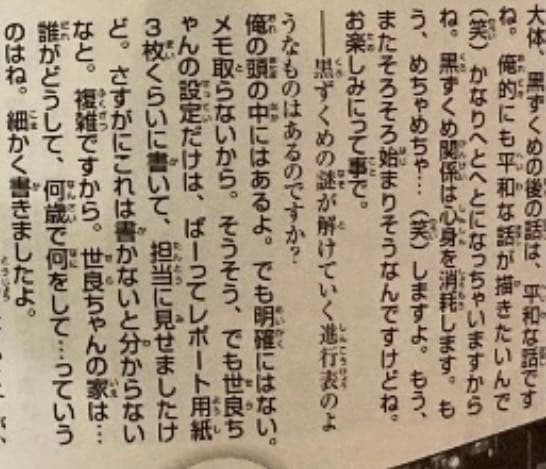 大体、黒ずくめの後の話は、平和な話です
ね。俺的にも平和な話が描きたいんで
(笑)かなりへとへとになっちゃいますから
ね。黒ずくめ関係は心身を消耗します。も
う、めちゃめちゃ…(笑)しますよ。もう、
またそろそろ始まりそうなんですけどね。
お楽しみにって事で。
――黒ずくめの謎が解けていく進行表のよ
うなものはあるのですか?
俺の頭の中にはあるよ。でも明確にはない。
メモ取らないから。そうそう、でも世良ち
ゃんの設定だけは、ばーってレポート用紙
3枚くらいに書いて、担当に見せましたけ
ど。さすがにこれは書かないと分からない
なと。複雑ですから。世良ちゃんの家は…
誰がどうして、何歳で何をして…っていう
のはね。細かく書きましたよ。